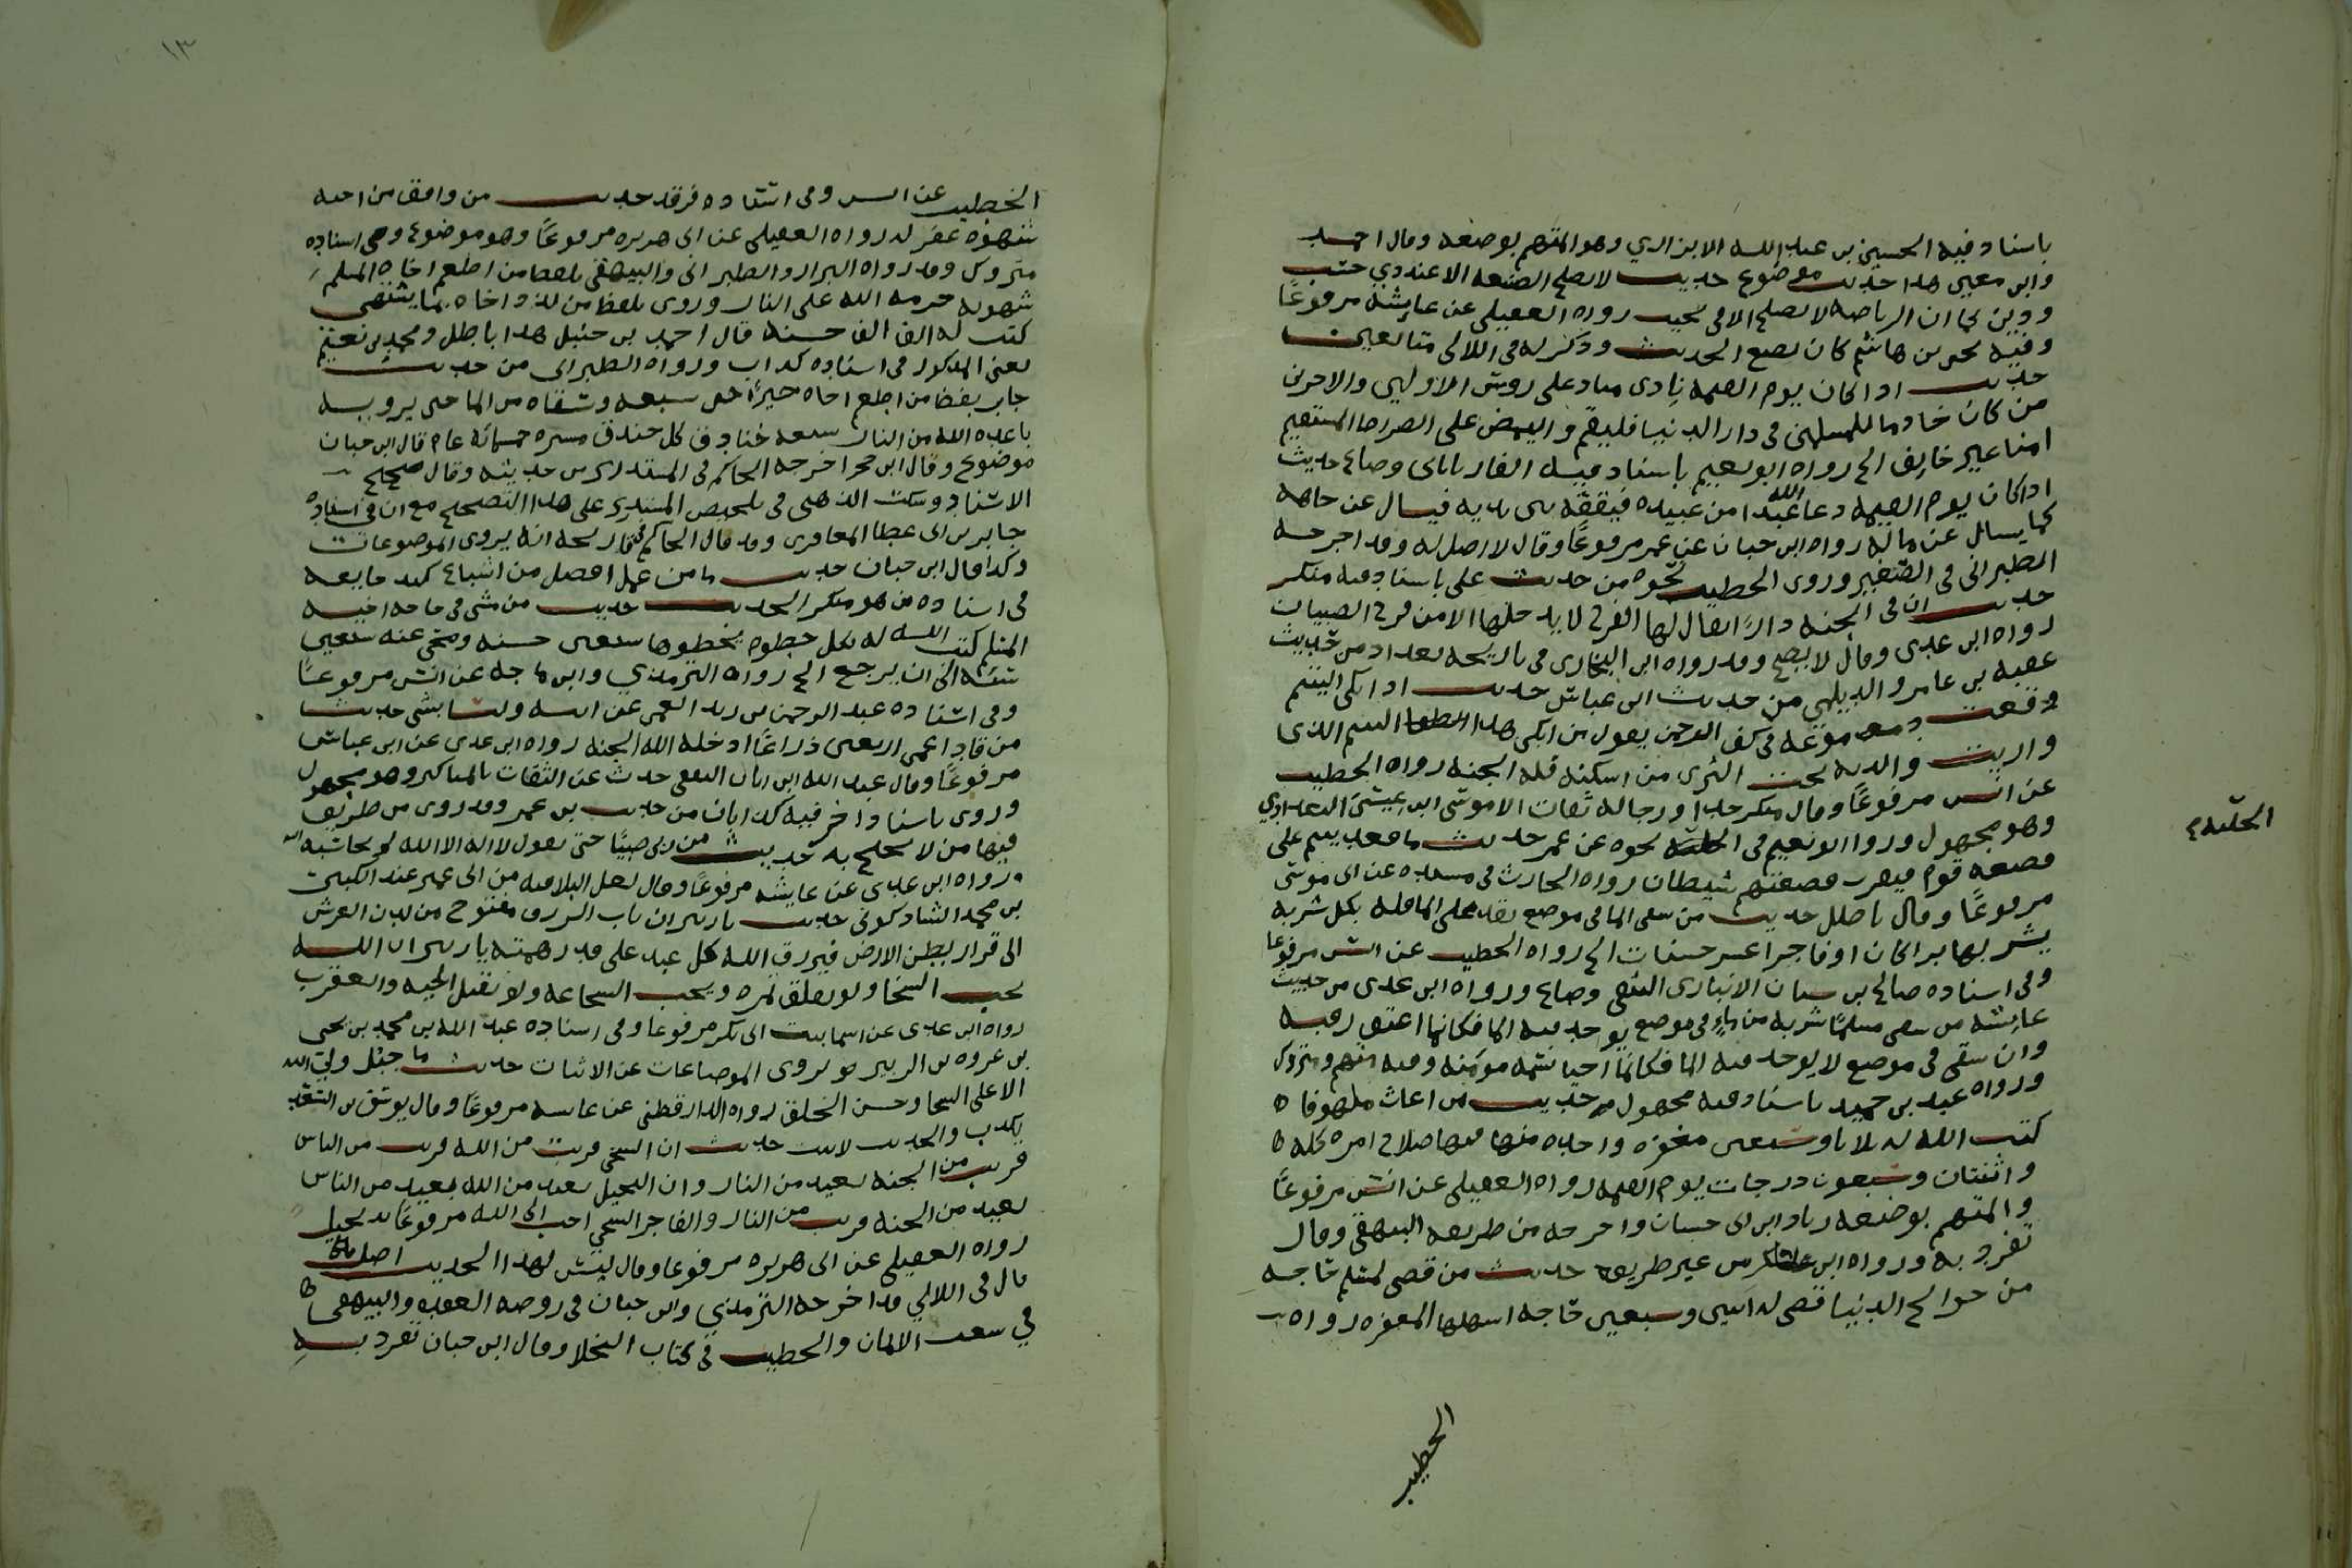 باسناد فيه الحسين بن عبد الله الابزاري وهو المتهم بوضعه وقال احمد
وابن معين هذا حديث موضوع حديث لا تصلح الصنيعة الا عند ذي حسب
ودين كما ان الرياضة لا تصلح الا في نجيب رواه العقيلي عن عايشة مرفوعًا
وفيه يحيى بن هاشم كان يضع الحديث وذكر له في اللالى متابعين
حديث اذا كان يوم القيمة نادى مناد على روس الاولين والاخرين
من كان خادما للمسلمين في دار الدنيا فليقم وليمض على الصراط المستقيم
امنا غير خايف الخ رواه ابو نعيم باسناد فيه الفارياناني وضاع حديث
اذا كان يوم القيمة دعا الله عبدا من عبيده فيقفه بين يديه فيسال عن جاهه
كما يسال عن ماله رواه ابن حبان عن عمر مرفوعًا وقال لا اصل له وقد اخرجه
الطبراني في الصغير وروى الخطيب نحوه من حديث على باسناد فيه منكر
حديث ان في الجنة دارًا يقال لها الفرح لا يدخلها الا من فرح الصبيان
رواه ابن عدى وقال لا يصح وقد رواه ابن النجارى في تاريخه بغداد من حديث
عقبة بن عامر والديلمي من حديث ابن عباس حديث اذا بكى اليتيم
وقعت دموعه في كف الرحمن يقول من ابكى هذا اليتيم الذى
واريت والديه تحت الثرى من اسكنه فله الجنة رواه الخطيب
عن انس مرفوعًا وقال منكر جدا ورجاله ثقات الا موسى ابن عيسى البغدادي
وهو مجهول وروا ابو نعيم في الحلية نحوه عن عمر حديث ما قعد يتيم على
قصعة قوم فيقرب قصعتهم شيطان رواه الحارث في مسنده عن ابي موسى
مرفوعًا وقال باطل حديث من سقى الما في موضع يقدر على الما فله بكل شربة
يشربها برا كان او فاجرا عشر حسنات الخ رواه الخطيب عن انس مرفوعا
وفى اسناده صالح بن بيان الانبارى الثقفى وضاع ورواه ابن عدى من حديث
عايشة من سقى مسلمًا شربة من ماءٍ في موضع يوجد فيه الما فكانما اعتق رقبة
وان سقى في موضع لا يوجد فيه الما فكانما احيا نسمة مومنة وفيه متهم ومتروك
ورواه عبد بن حميد باسناد فيه مجهول حديث من اغاث ملهوفا
كتب الله له ثلاثا وسبعين مغفرة واحدة منها فيها صلاح امره كله
واثنتان وسبعون درجات يوم القيمة رواه العقيلى عن انس مرفوعًا
والمتهم بوضعه زياد ابن ابى حسان واخرجه من طريقه البيهقي وقال
تفرد به ورواه ابن عساكر من غير طريقه حديث من قضى لمسلم حاجة
من حوائج الدنيا قضى له اثنين وسبعين حاجة اسهلها المغفرة رواه
الحلية
الخطيب
١٣
الخطيب عن انس وفى اسناده فرقد حديث من وافق من اخيه
شهوة غفر له رواه العقيلى عن ابى هريره مرفوعًا وهو موضوع وفى اسناده
متروك وقد رواه البزار والطبرانى والبيهقى بلفظ من اطعم اخاه المسلم
شهوته حرمه الله على النار وروى بلفظ من لذذ اخاه بما يشتهى
كتب له الف الف حسنة قال احمد بن حنبل هذا باطل ومحمد بن نعيم
يعنى المذكور في اسناده كذاب ورواه الطبرانى من حديث
جابر بلفظ من اطعم اخاه خبزًا حتى يشبعه وسقاه من الما حتى يرويه
باعده الله من النار سبعة خنادق كل خندق مسيرة خمسمائة عام قال ابن حبان
موضوع وقال ابن حجر اخرجه الحاكم في المستدرك من حديثه وقال صحيح
الاسناد وسكت الذهبى في تلخيص المستدرك على هذا التصحيح مع ان في اسناده
جابر بن ابى عطا المعافرى وقد قال الحاكم في تاريخه انه يروى الموضوعات
وكذا قال ابن حبان حديث ما من عمل افضل من اشباع كبد جايعة
في اسناده من هو منكر الحديث حديث من مشى في حاجة اخيه
المسلم كتب الله له بكل خطوة يخطوها سبعين حسنة ومحى عنه سبعين
سيئة الى ان يرجع الخ رواه الترمذي وابن ماجه عن انس مرفوعًا
وفى اسناده عبد الرحمن بن زيد العمى عن ابيه وليسا بشى حديث
من قاد اعمى اربعين ذراعًا ادخله الله الجنة رواه ابن عدى عن ابن عباس
مرفوعًا وقال عبد الله ابن ابان الثقفى حدث عن الثقات بالمناكير وهو مجهول
وروى باسناد اخر فيه كذابان من حديث بن عمر وقد روى من طريق
فيها من لا يحتج به حديث من ربى صبيًا حتى يقول لا اله الا الله لم يحاسبه الله
رواه ابن عدى عن عايشة مرفوعًا وقال لعل البلا فيه من ابى عمير عبد الكبير
بن محمد الشاذكونى حديث يا زبير ان باب الرزق مفتوح من لدن العرش
الى قرار بطن الارض فيرزق الله كل عبد على قدر همته يا زبير ان الله
يحب السخا ولو بفلق تمرة ويحب الشجاعة ولو بقتل الحية والعقرب
رواه ابن عدى عن اسما بنت ابى بكر مرفوعا وفى اسناده عبد الله بن محمد بن يحيى
بن عروة بن الزبير هو يروى الموضاعات عن الاثبات حديث ما جبل ولي الله
الا على السخا وحسن الخلق رواه الدارقطنى عن عايشة مرفوعًا وقال يوسف بن السفر
يكذب والحديث لا يثبت حديث ان السخي قريب من الله قريب من الناس
قريب من الجنة بعيد من النار وان البخيل بعيد من الله بعيد من الناس
بعيد من الجنة قريب من النار والفاجر السخي احب الى الله مرفوعًا بخيل
رواه العقيلى عن ابى هريره مرفوعا وقال ليس لهذا الحديث اصل
قال في اللالي قد اخرجه الترمذي وابن حبان في روضة العقلا والبيهقى
في شعب الايمان والخطيب في كتاب البخلا وقال ابن حبان تفرد به